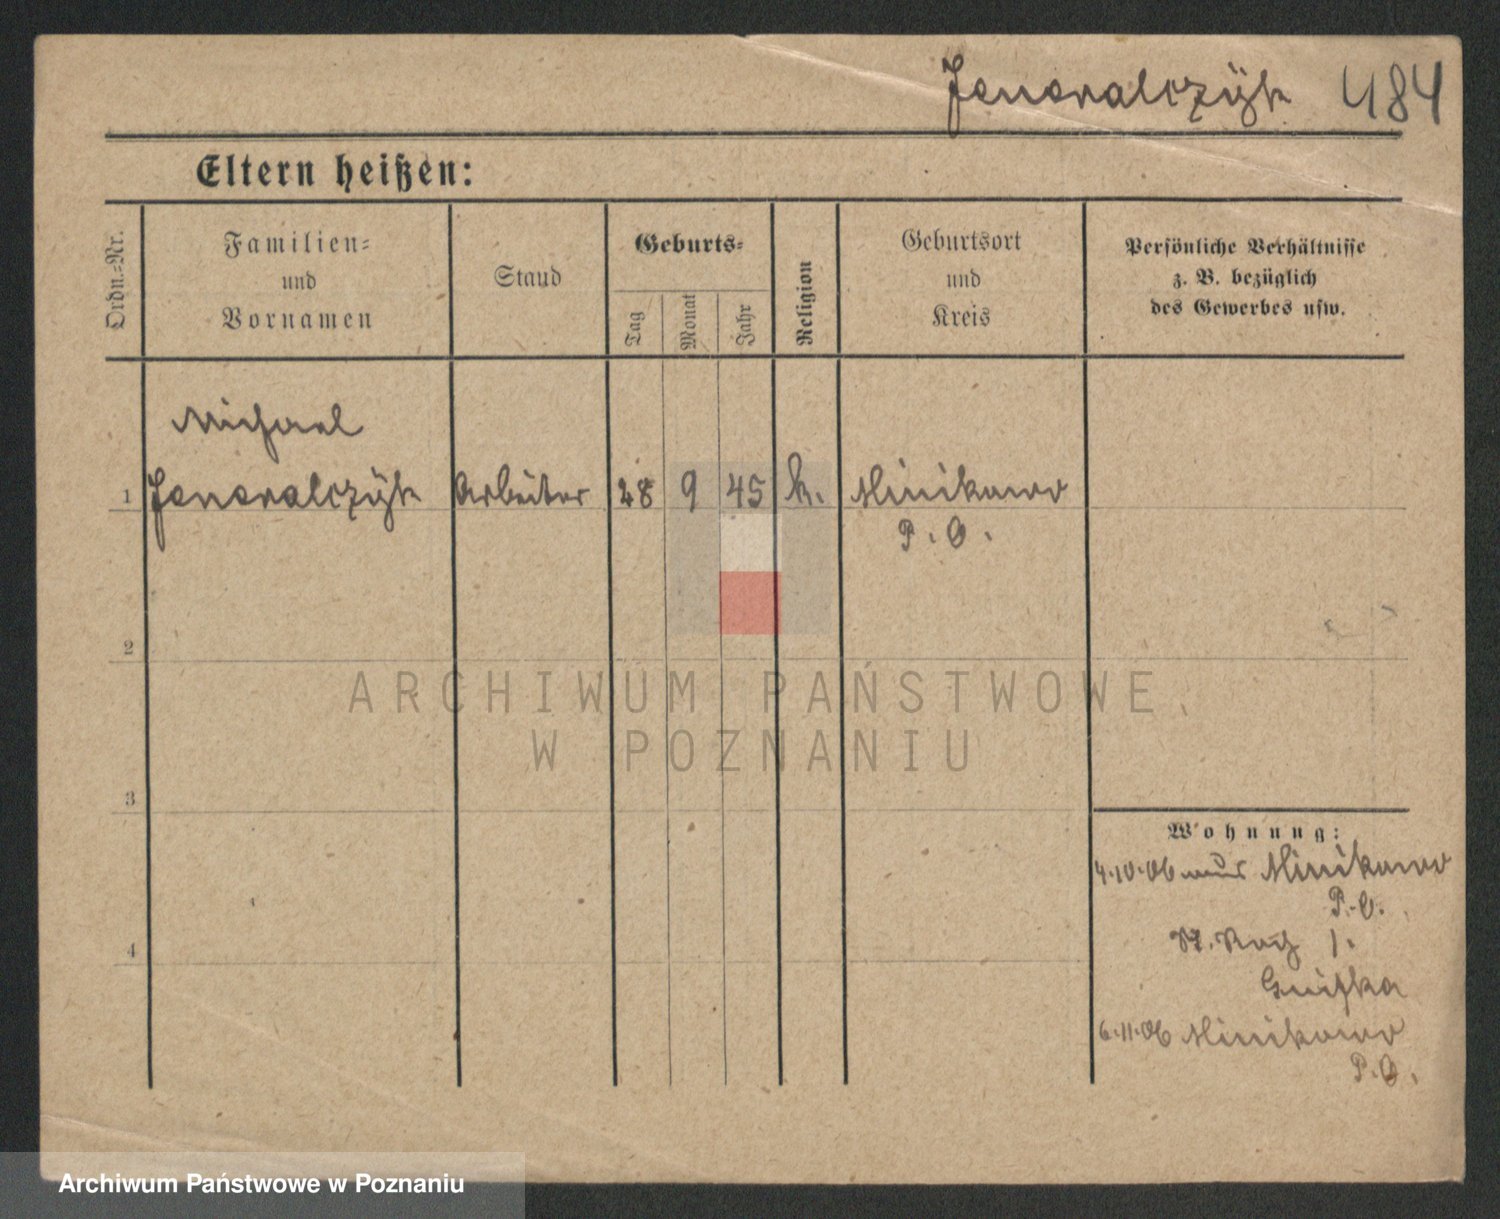 Jeneralczÿk 484
Eltern heißen:
Ordn.=Nr.
Familien=
und
Vornamen
Stand
Geburts=
Tag
Monat
Jahr
Religion
Geburtsort
und
Kreis
Persönliche Verhältnisse
z. B. bezüglich
des Gewerbes usw.
Michael
1 Jeneralczÿk Arbeiter 28 9 45 k. Minikowo
P. O.
2
3
4
Wohnung:
4.10.06 aus Minikowo
P. O.
St. Roch 1.
6.11.06 Minikowo
P. O.
ARCHIWUM PAŃSTWOWE
W POZNANIU
Archiwum Państwowe w Poznaniu